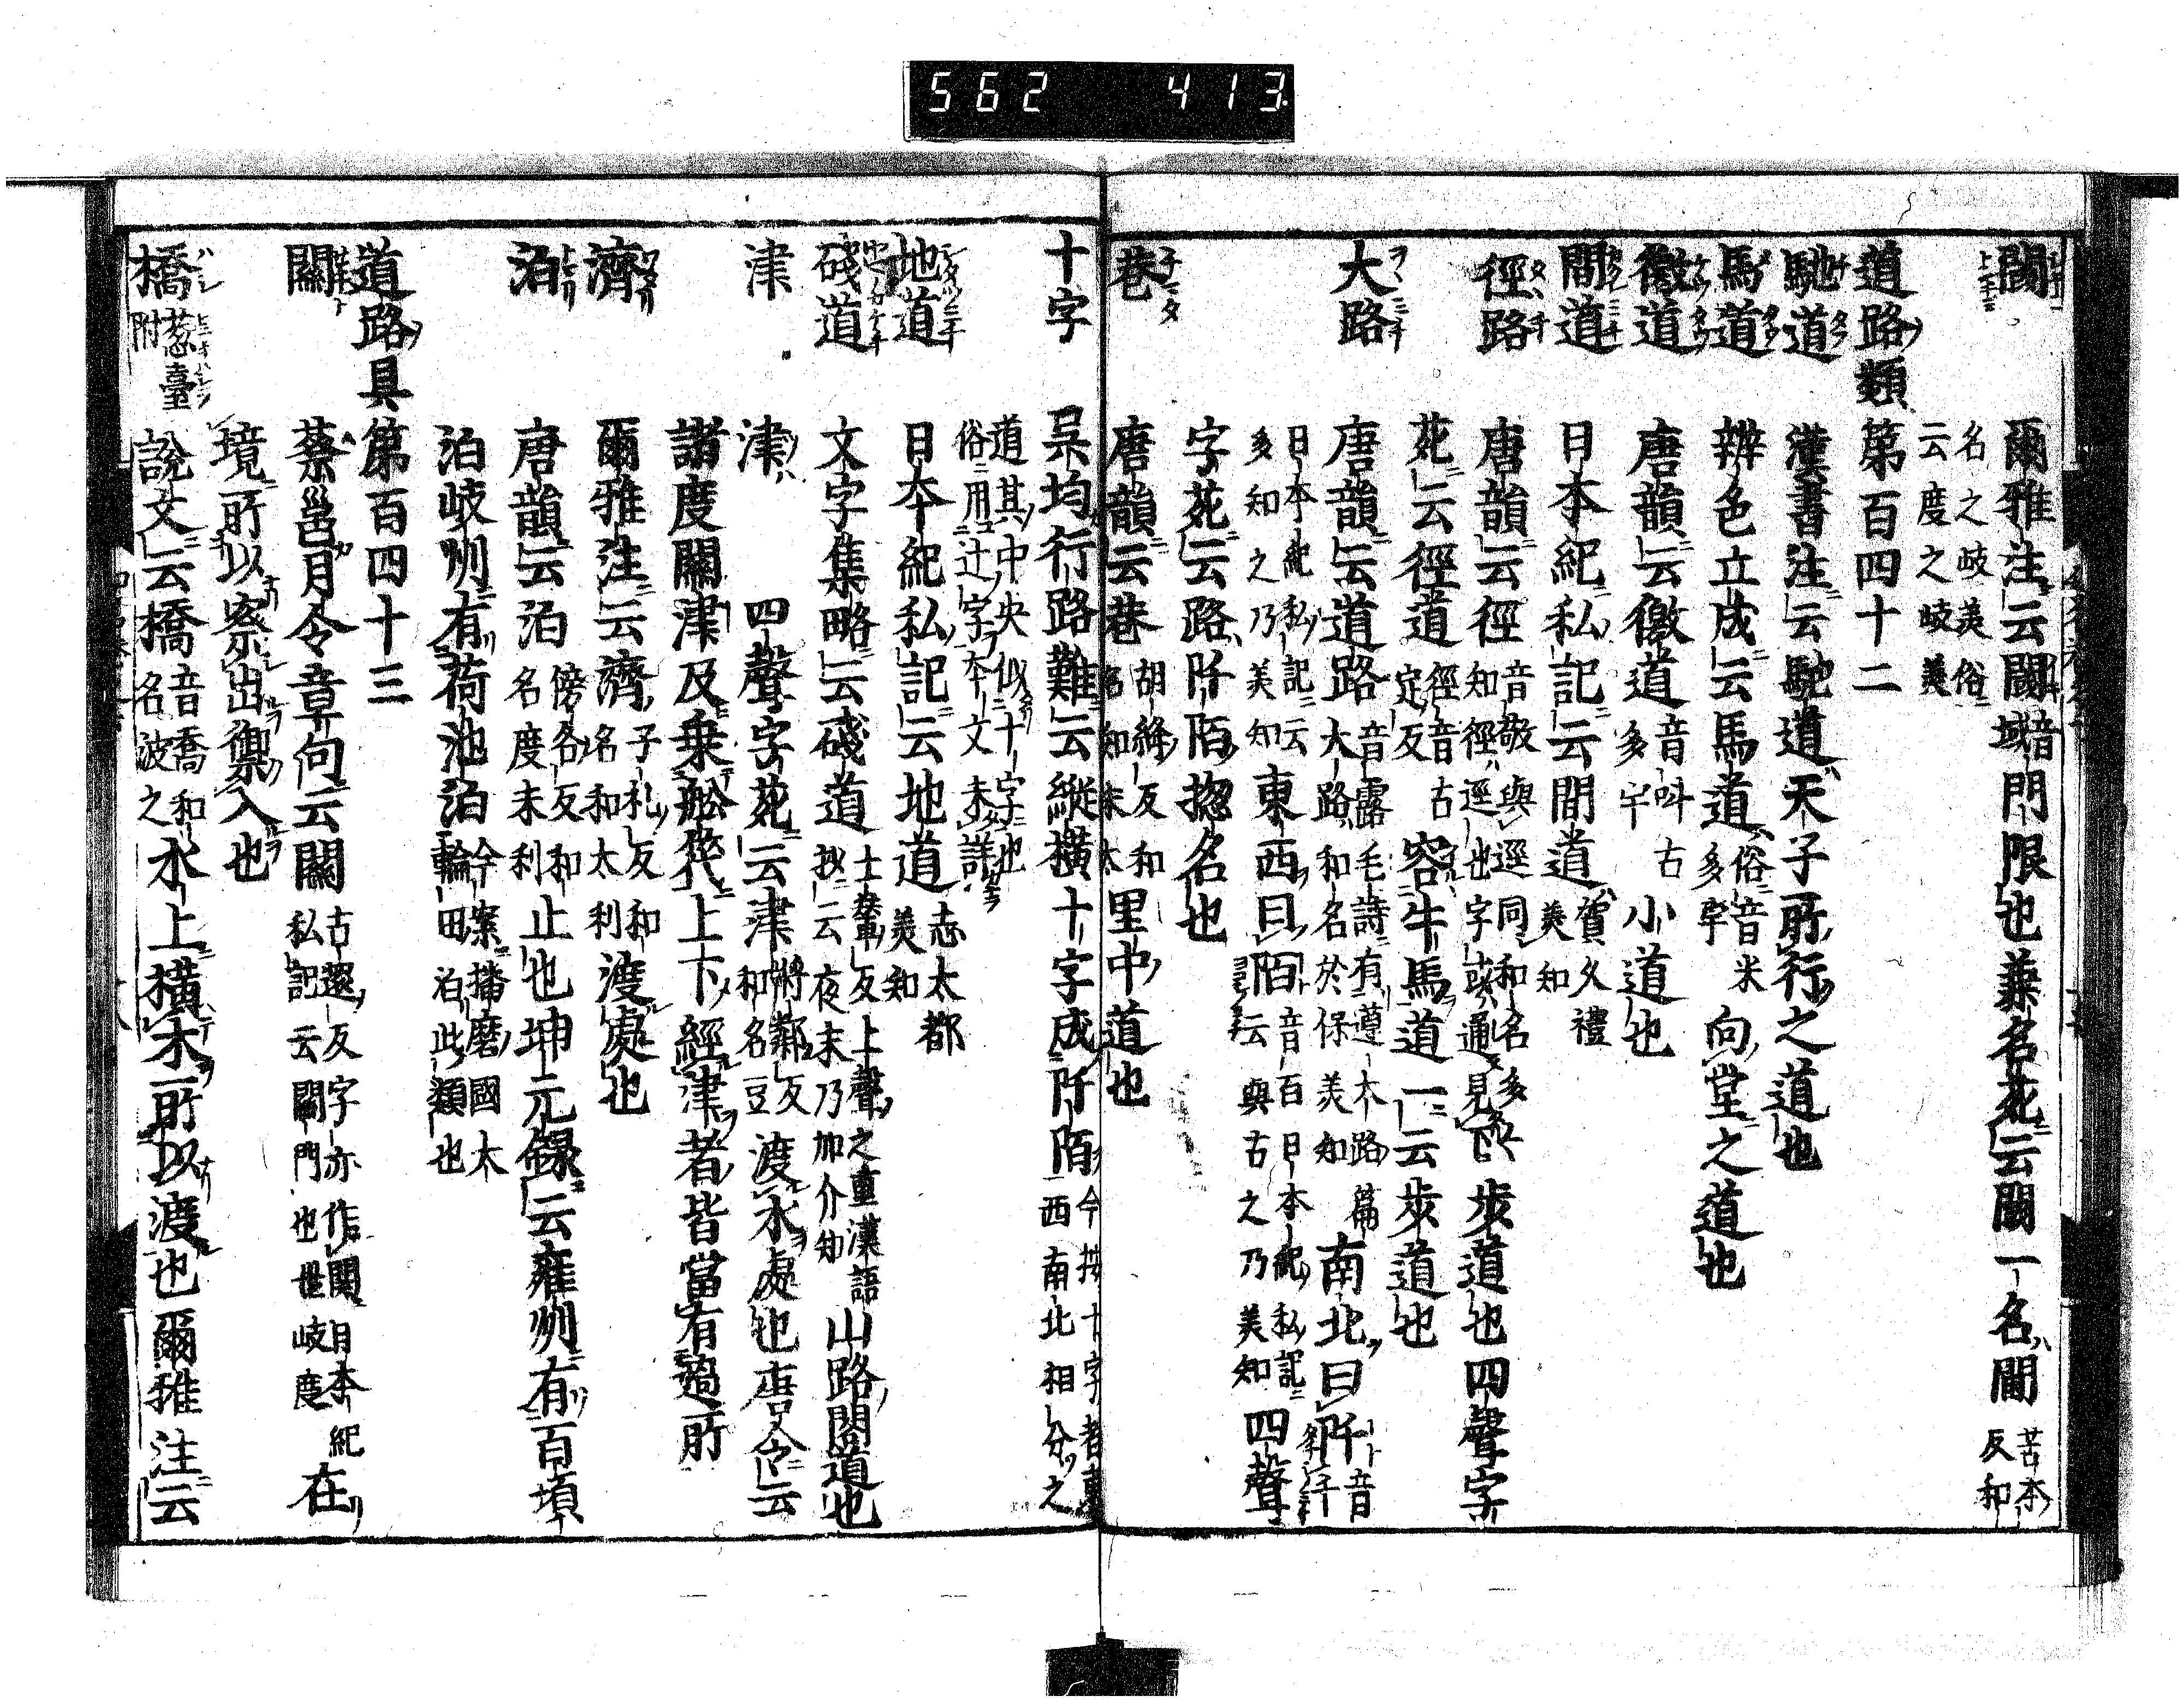 562 413
閾 爾雅注云閾音域門限也兼名苑云閾一名閫苦本反和
名之岐美俗云度之岐美
道路類第百四十二
馳道 漢書注云馳道天子所行之道也
馬道 辨色立成云馬道俗音米多宇向堂之道也
徼道 唐韻云徼道音叫古多宇小道也
間道 日本紀私記云間道賀久禮美知
徑路 唐韻云徑音敬與逕同和名多々知徑逕也字或通見下步道也四聲字
苑云徑道徑音古定反容牛馬道一云步道也
大路 唐韻云道路音露毛詩有遵大路篇大路和名於保美知南北曰阡音千
日本紀私記云多知之乃美知東西曰陌音百日本紀私記云與古之乃美知四聲
字苑云路阡陌惣名也
巷 唐韻云巷胡絳反和名知末太里中道也
十字 吴均行路難云縱橫十字成阡陌今按十字者東西南北相分之
道其中央似十字也俗用辻字本文未詳
地道 日本紀私記云地道志太都美知
磩道 文字集略云磩道士輦反上聲之重漢語抄云夜末乃加介知山路閣道也
津 四聲字苑云津將鄰反和名豆渡水處也唐令云
諸度關津及乗舩筏上下經津者皆當有過所
濟 爾雅注云濟子礼反和名和太利渡處也
泊 唐韻云泊傍各反和名度末利止也坤元録云雍州有百頃
泊岐州有荷池泊今案播磨國大輪田泊此類也
道路具第百四十三
關 蔡邕月令章句云關古還反字亦作関日本紀私記云關門也世岐度在
境所以察出禦入也
橋葱臺附 說文云橋音喬和名波之水上橫木所以渡也爾雅注云